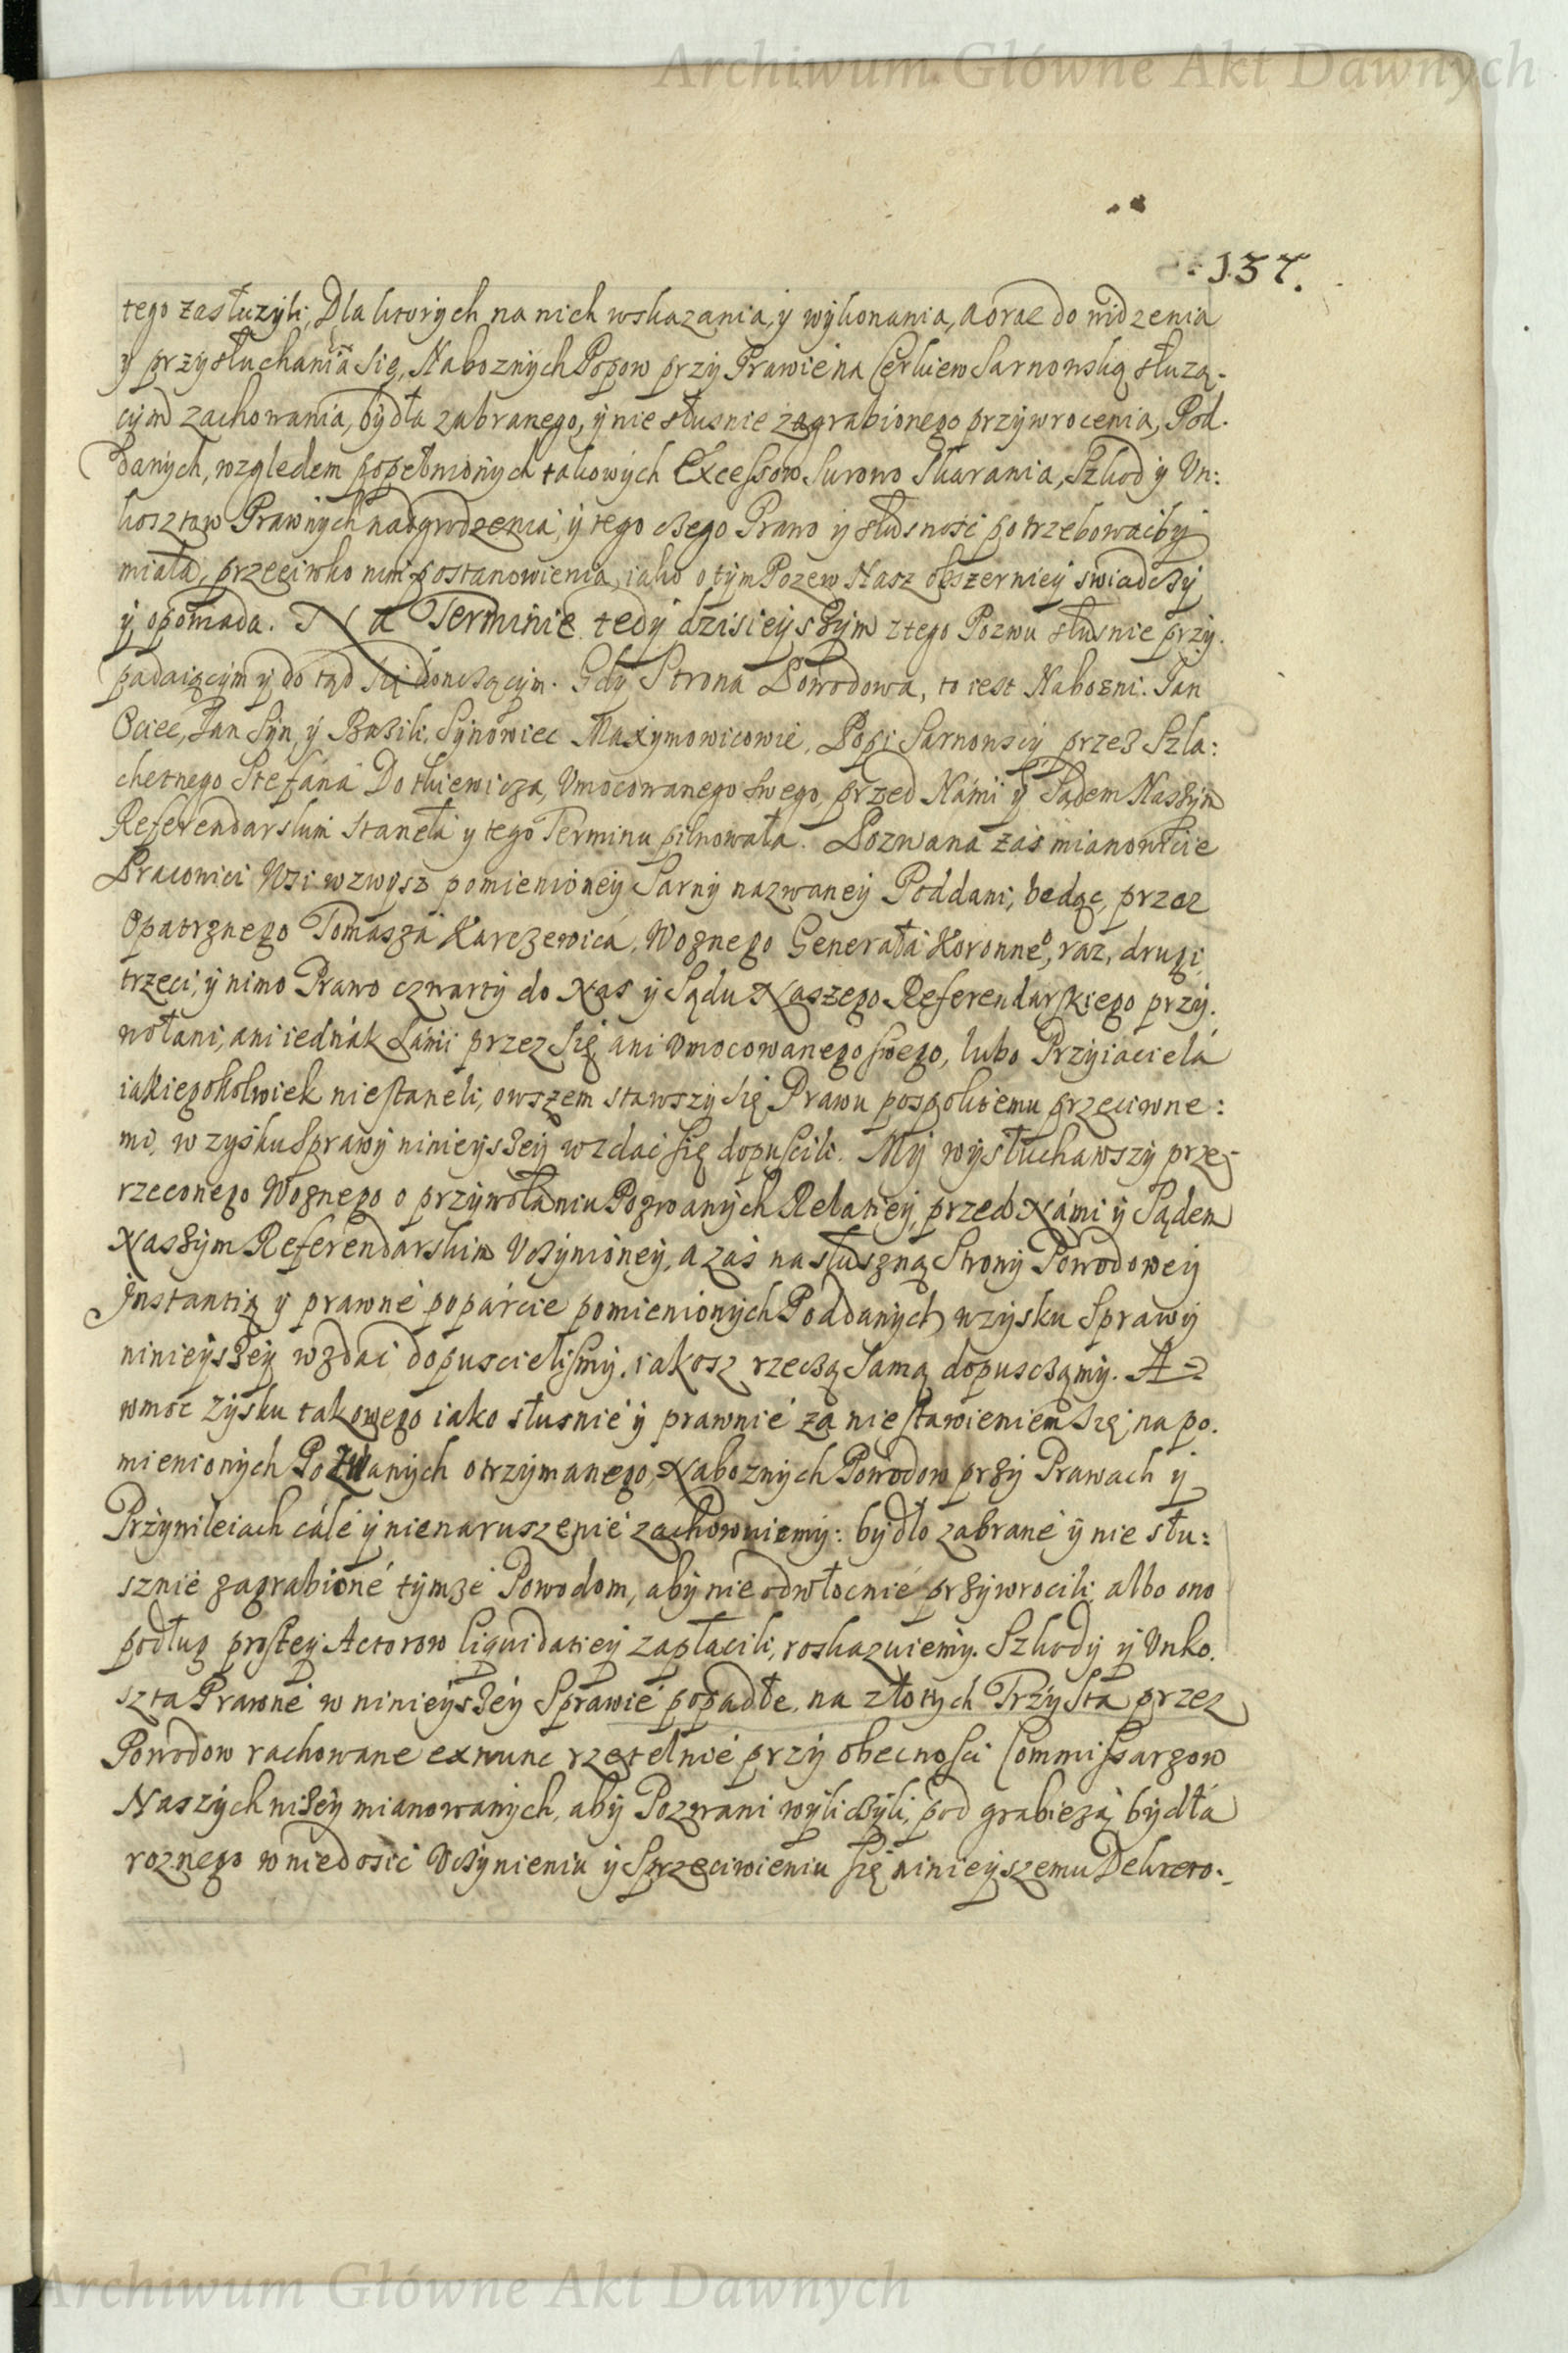 Archiwum Główne Akt Dawnych
137.
tego zasłuzyli, Dla ktorych na nich wskazania, y wykonania, a oraz do widzenia
y przysłuchania Się, Naboznych Popow przy Prawie na Cerkiew Sarnowską słuzą-
cym zachowania, bydła zabranego, y nie słusnie zagrabionego przywrocenia, Pod-
danych, względem popełnionych takowych Excessow Surowo Skarania, Szkod y Un:
kosztow Prawnych nadgrodzenia, y tego czego Prawo y słusnosć potrzebowaćby
miała, przeciwko nim postanowienia, iako o tym Pozew Nasz obszerniey swiadczy
y opowiada. Na Terminie tedy dzisieyszym z tego Pozwu słusnie przy-
padaiącym y do tąd Się donczącym. Gdy Strona Powodowa, to iest Nabozni. Jan
Ociec, Jan Syn, y Bazili. Synowiec Maxymowicowie, Popi Sarnowscy przez Szla:
chetnego Stefana Dotkiewicza, Umocowanego Swego, przed Námi y Sądem Naszym
Referendarskim Staneła y tego Terminu pilnowała. Pozwana zas mianowicie
Pracowici Wsi wzwysz pomienioney Sarny nazwaney Poddani, bedąc, przez
Opatrznego Tomasza Karczewica, Woznego Generała Koronneo, raz, drugi,
trzeci, y nimo Prawo czwarty do Nas y Sądu Naszego Referendarskiego przy-
wołani, ani iednák Sámi przez Się, ani Umocowanego Swego, lubo Przyiacielá
iakiegokolwiek niestaneli, owszem stawszy Się Prawu pospolitemu przeciwne:
mi, w zysku Sprawy ninieyszey wzdać Się dopuscili. My wysłuchawszy prze-
rzeczonego Woznego o przywołaniu Pozwanych Relatiey, przed Námi y Sądem
Naszym Referendarskim Uczynioney, a zaś na słuszną Strony Powodowey
Instantią y prawné popárcie pomienionych Poddanych w zysku Sprawy
ninieyszey wzdać dopuscielismy, iakosz rzeczą Samą dopusczámy. A
wmoc zysku takowego iako słusnie y prawnie za niestawieniem Się na po-
mienionych Pozwanych otrzymanego, Naboznych Powodow przy Prawach y
Przywileiach cále y nienaruszenie zachowuiemy: bydło zabrané y nie słu:
sznie zagrabioné tymze Powodom, aby nie odwłocnie przywrocili, albo ono
podług prostey Actorow liquidatiey zapłacili, roskazuiemy. Szkody y Unko-
szta Prawné w ninieyszéy Sprawie popadłe, na złotych Trzysta przez
Powodow rachowane exnunc rzetelnie przy obecnosci Commissarzow
Naszych nizey mianowanych, aby Pozwani wyliczyli, pod grabiezą bydła
roznego w niedosić Uczynieniu y Sprzeciwieniu Się ninieyszemu Dekreto:
Archiwum Główne Akt Dawnych